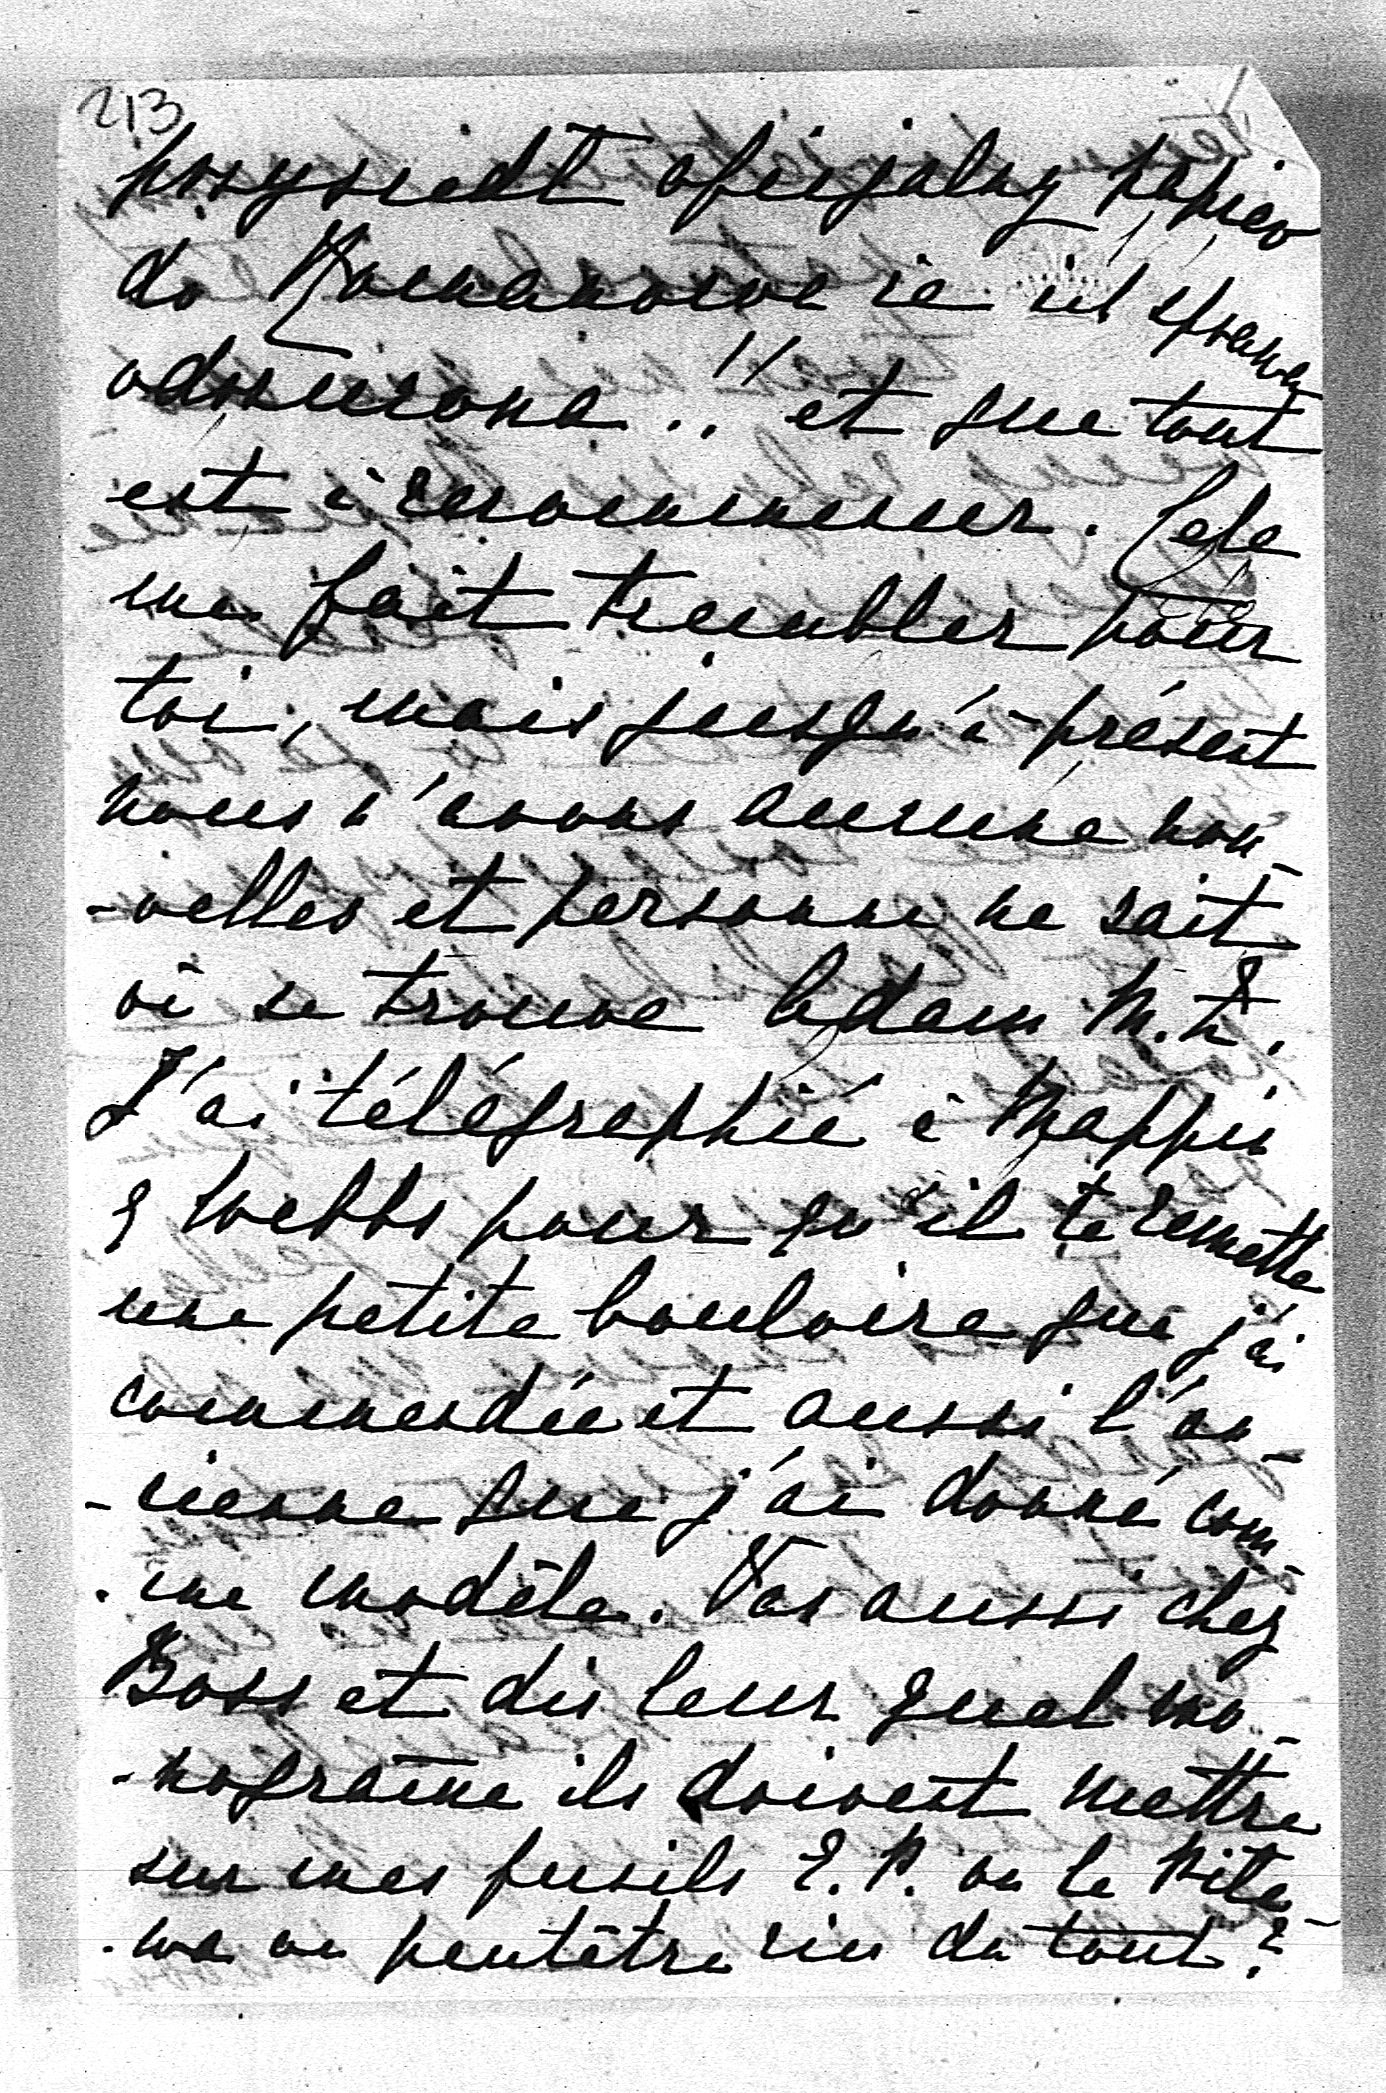 213
przyszedł oficjalny papier
do Romanowa że jest sprawa
odrzucona..." et que tout
est à recommencer. Cela
me fait trembler pour
toi, mais jusqu'à présent
nous n'avons aucune nou-
-velles et personne ne sait
où se trouve Adam M. Z.
J'ai télégraphié à Mappin
& Webbs pour qu'il te remette
une petite bouloire que j'ai
commendée et aussi l'an-
-cienne que j'ai donné com-
-me modèle. Vas aussi chez
Boss et dis leur quel mo-
-nograme ils doivent mettre
sur mes fusils E. P. ou le Pila-
-wa ou peutêtre rien du tout?